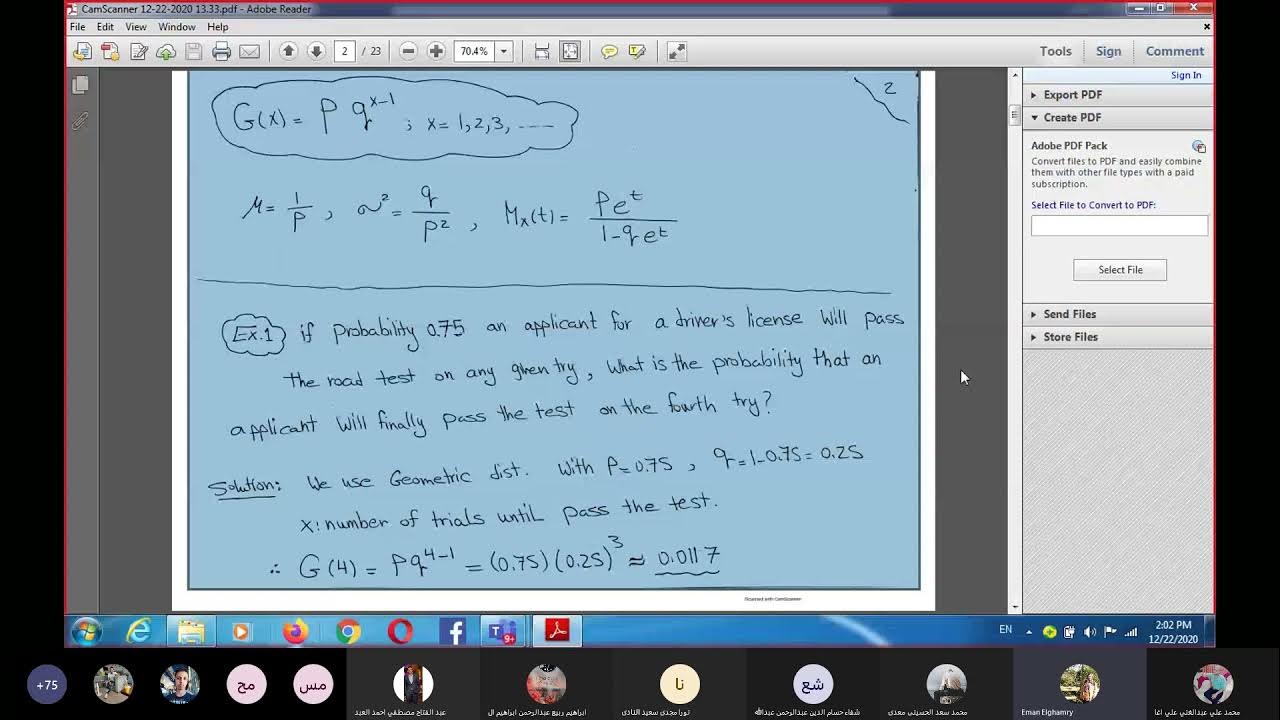 CamScanner 12-22-2020 13.33.pdf - Adobe Reader
File Edit View Window Help
2 / 23 70.4% Tools Sign Comment
Sign In
Export PDF
Create PDF
Adobe PDF Pack
Convert files to PDF and easily combine
them with other file types with a paid
subscription.
Select File to Convert to PDF:
Select File
Send Files
Store Files
2
G(x) = P q^{x-1} ; x = 1,2,3, ----
μ = 1/P , σ² = q/P² , Mx(t) = Pe^t / 1-qe^t
Ex.1 if probability 0.75 an applicant for a driver's license will pass
the road test on any given try, what is the probability that an
applicant will finally pass the test on the fourth try?
Solution: We use Geometric dist. With P=0.75 , q=1-0.75=0.25
X: number of trials until pass the test.
∴ G(4) = Pq^{4-1} = (0.75)(0.25)^3 ≈ 0.0117
Scanned with CamScanner
EN 2:02 PM
12/22/2020
9+
+75
مح
مس
عبد الفتاح مصطفي احمد العبد
ابراهيم ربيع عبدالرحمن ابراهيم ال
نا
نورا مجدى سعيد النادى
شع
شفاء حسام الدين عبدالرحمن عبدالله
محمد سعد الحسينى معدى
Eman Elghamry
محمد علي عبدالغني علي اغا